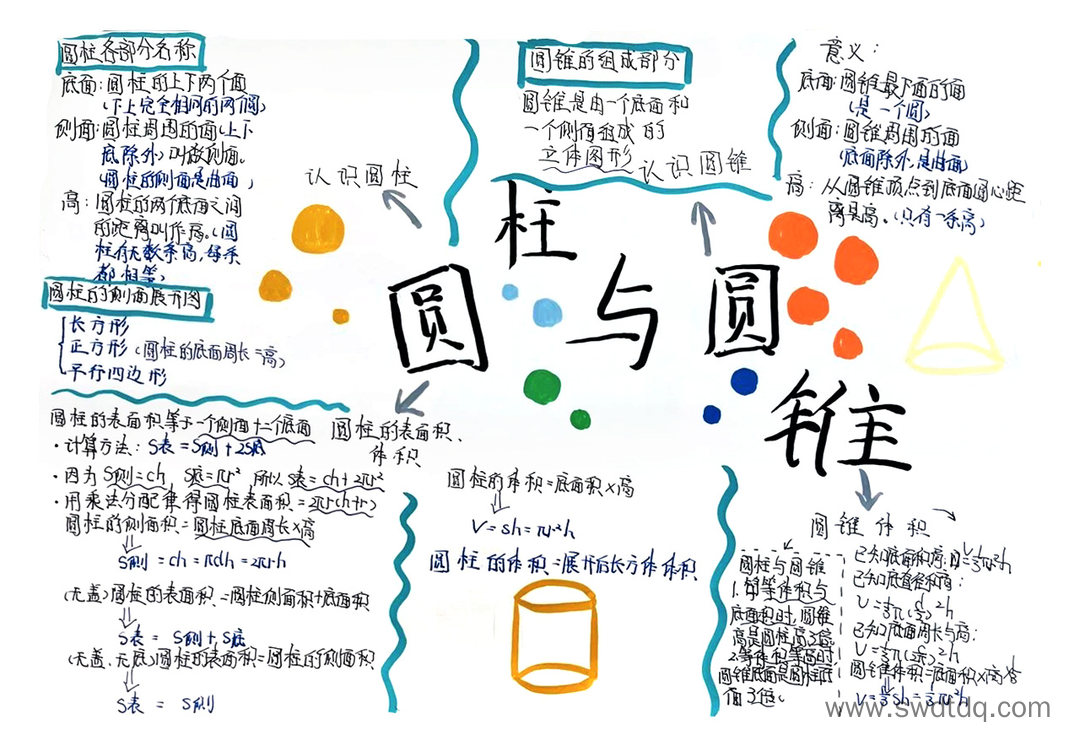 圆柱各部分名称
底面:圆柱的上下两个面
(下上完全相同的两个圆)
侧面:圆柱周围的面(上下
底除外)叫做侧面。
(圆柱的侧面是曲面)
高:圆柱的两个底面之间
的距离叫作高。(圆
柱有无数条高,每条
都相等)
圆柱的侧面展开图
长方形
正方形(圆柱的底面周长=高)
平行四边形
认识圆柱
圆锥的组成部分
圆锥是由一个底面和
一个侧面组成的
立体图形
认识圆锥
意义:
底面:圆锥最下面的面
(是一个圆)
侧面:圆锥周围的面
(底面除外,是曲面)
高:从圆锥顶点到底面圆心距
离是高。(只有一条高)
圆柱与圆锥
圆柱的表面积等于一个侧面+二个底面
·计算方法:S表=S侧+2S底
·因为S侧=ch S底=πr² 所以S表=ch+2πr²
·用乘法分配律得圆柱表面积=2πr(h+r)
圆柱的侧面积=圆柱底面周长×高
S侧=ch=πdh=2πrh
(无盖)圆柱的表面积=圆柱侧面积+底面积
S表=S侧+S底
(无盖、无底)圆柱的表面积=圆柱的侧面积
S表=S侧
圆柱的表面积、
体积
圆柱的体积=底面积×高
V=sh=πr²h
圆柱的体积=展开后长方体体积
圆锥体积
圆柱与圆锥
底面积时,圆锥
高是圆柱高3倍
2.等体积等高时
圆锥底面是圆柱底
面3倍。
已知底面积高:
已知底直径和高:
已知底面周长与高:
圆锥体积=底面积×高×⅓
V=⅓sh=⅓πr²h
www.swdtdq.com